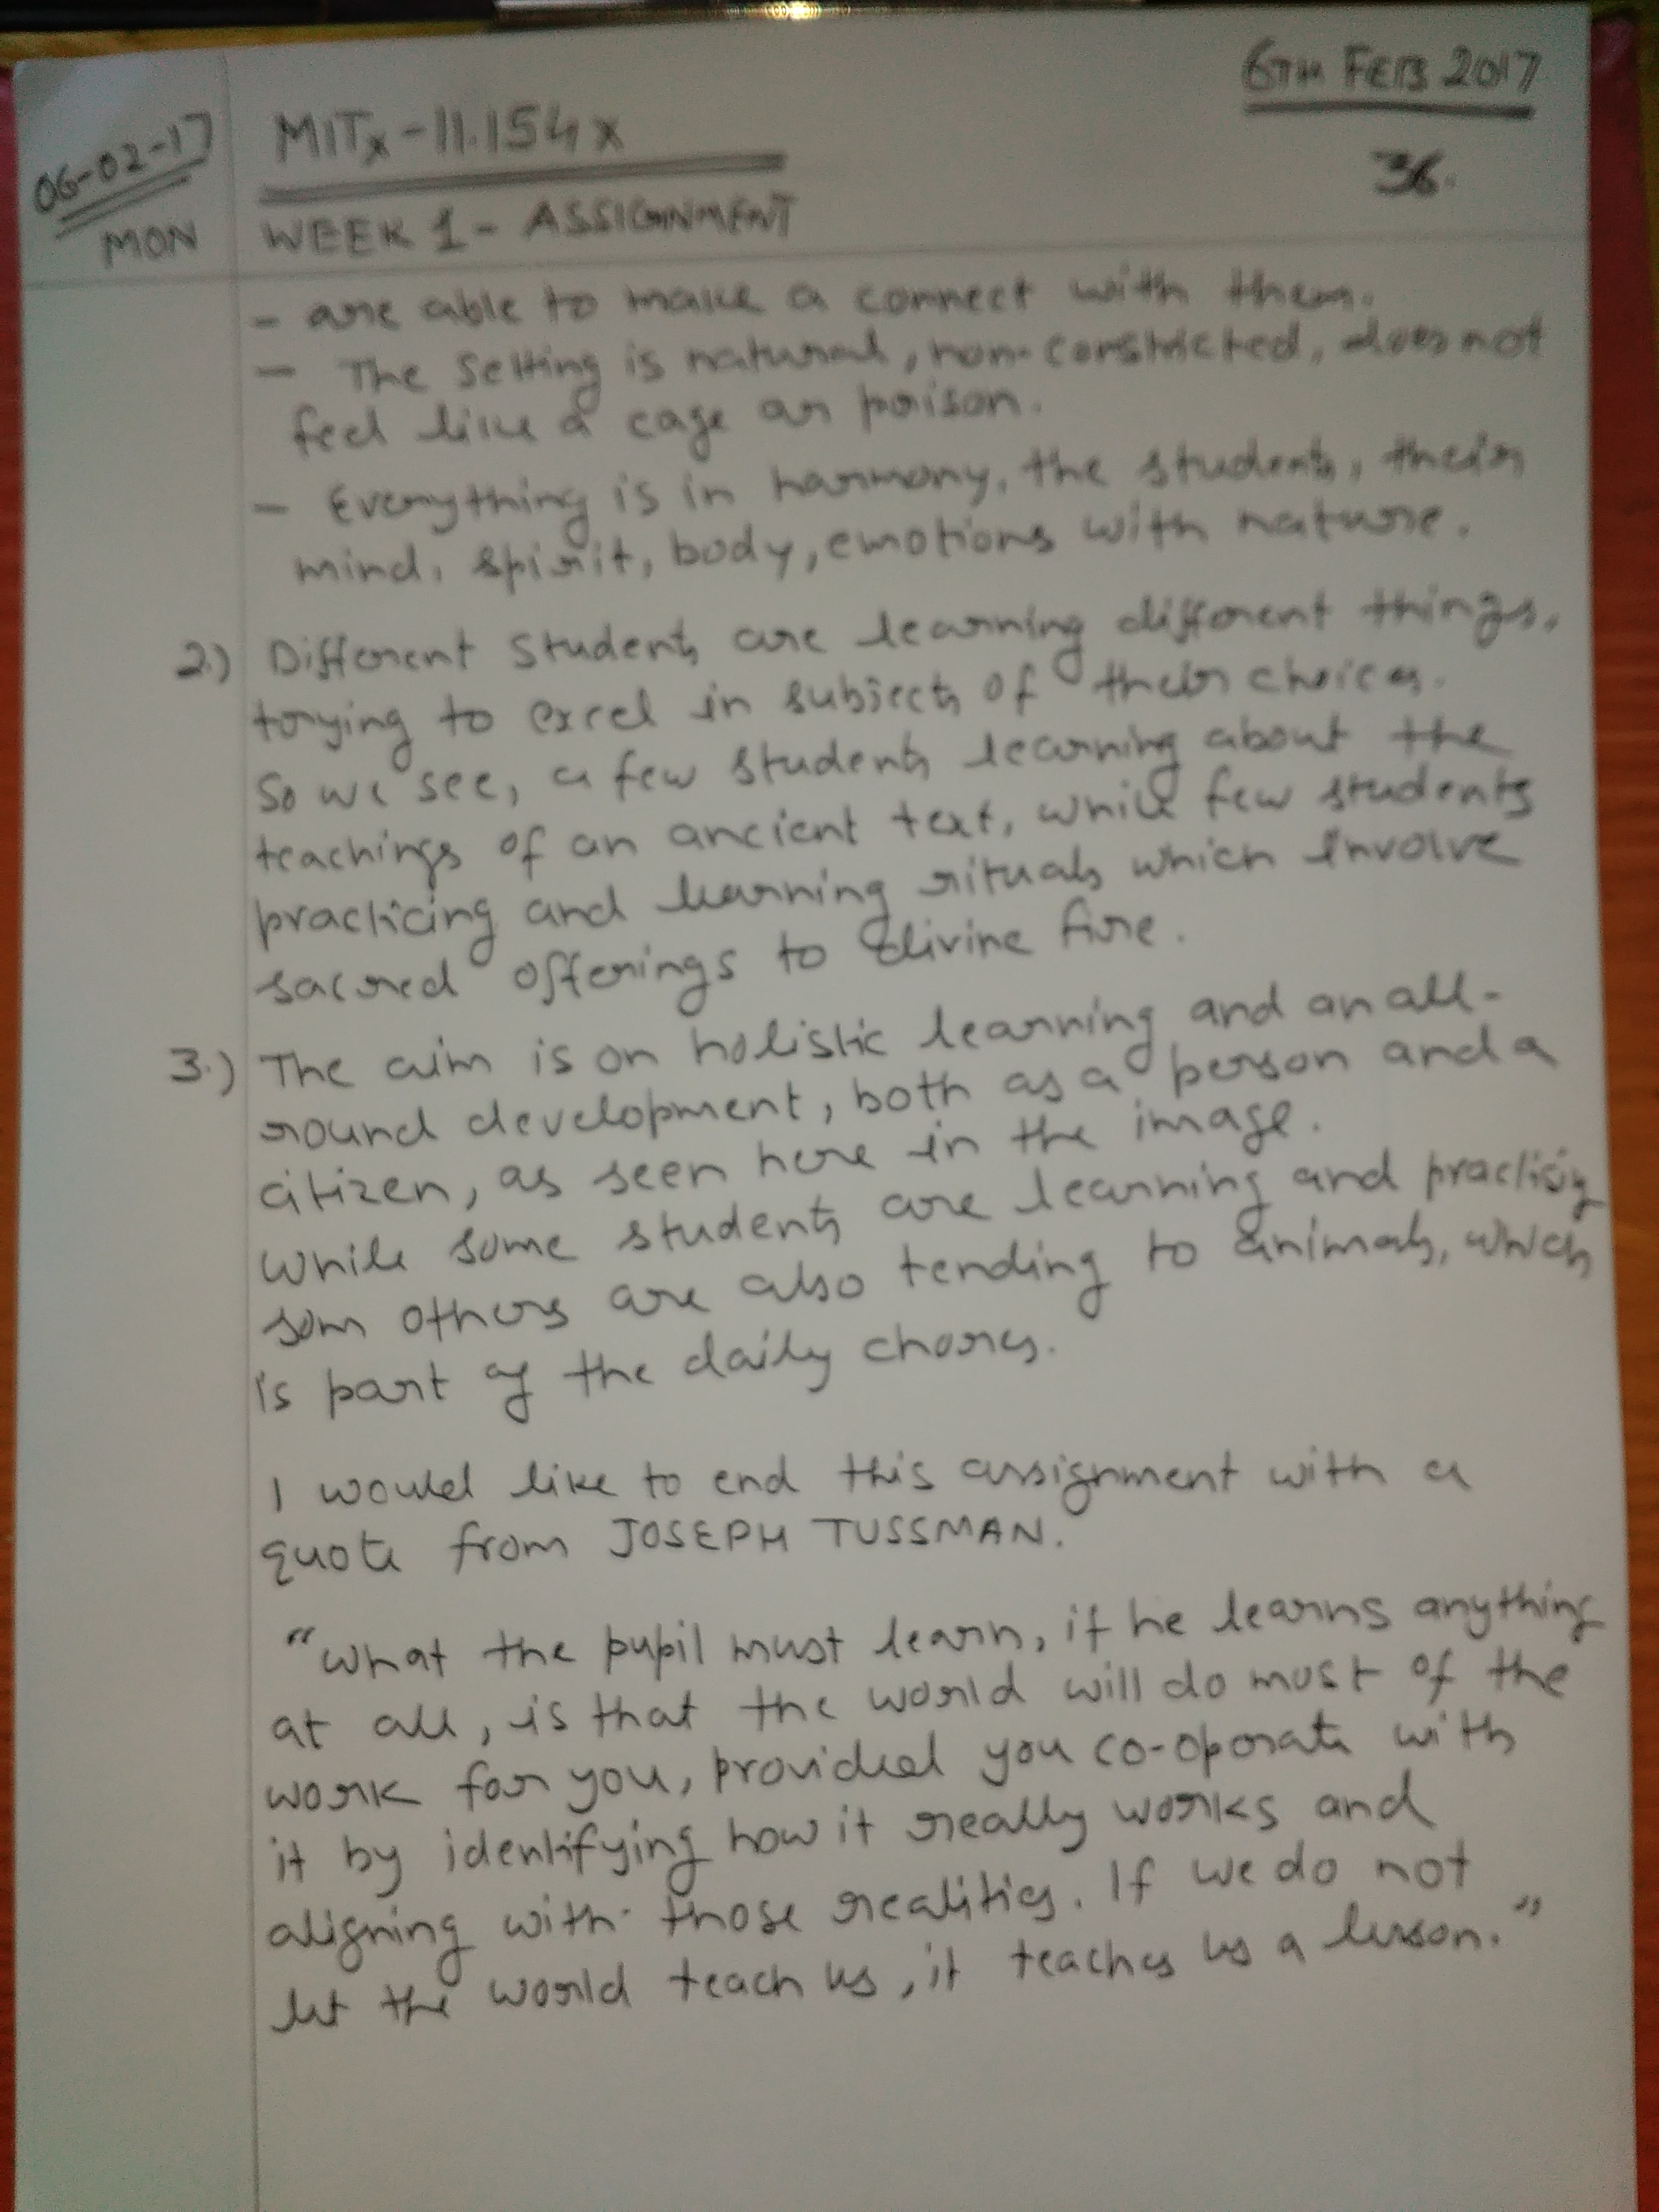 6TH FEB 2017
06-02-17
MON
MITx-11.154x
36.
WEEK 1- ASSIGNMENT
- are able to make a connect with them.
- The Setting is natural, non-constricted, does not
feel like a cage or prison.
- Everything is in harmony, the students, their
mind, spirit, body, emotions with nature.
2.) Different Students are learning different things,
trying to excel in subjects of their choices.
So we see, a few students learning about the
teachings of an ancient text, while few students
practicing and learning rituals which involve
sacred offerings to divine fire.
3.) The aim is on holistic learning and an all-
round development, both as a person and a
citizen, as seen here in the image.
While some students are learning and practising
som others are also tending to animals, which
is part of the daily chores.
I would like to end this assignment with a
quote from JOSEPH TUSSMAN.
"What the pupil must learn, if he learns anything
at all, is that the world will do most of the
work for you, provided you co-operate with
it by identifying how it really works and
aligning with those realities. If we do not
let the world teach us, it teaches us a lesson."